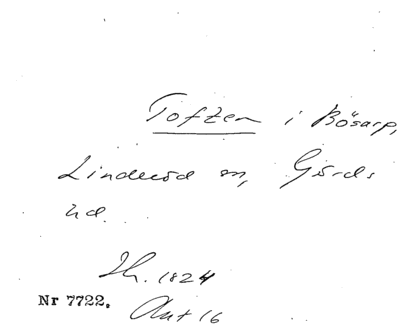 Toftzen i Bösarp,
Linderöd sn, Gärds
hd.
Lh. 1824
Nr 7722. Akt 16